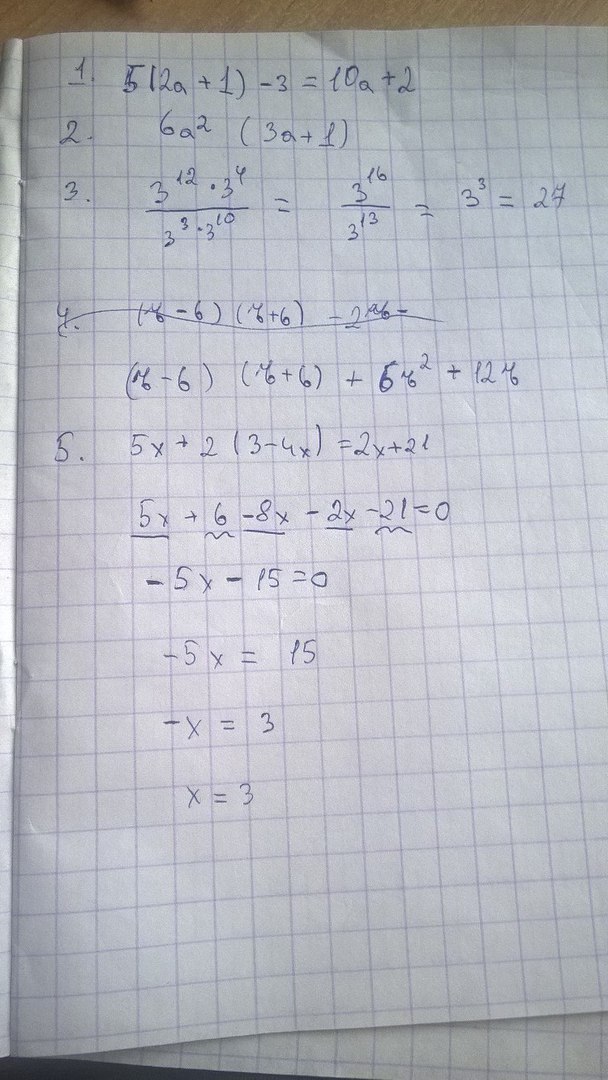 1. 5(2a+1) -3 = 10a+2
2. 6a² (3a+1)
3. 3¹²·3⁴ / 3³·3¹⁰ = 3¹⁶ / 3¹³ = 3³ = 27
4. (r-6) (r+6) - 2
(r-6) (r+6) + 5r² + 12r
5. 5x + 2 (3-4x) = 2x+21
5x + 6 -8x - 2x -21=0
-5x - 15=0
-5x = 15
-x = 3
x = 3